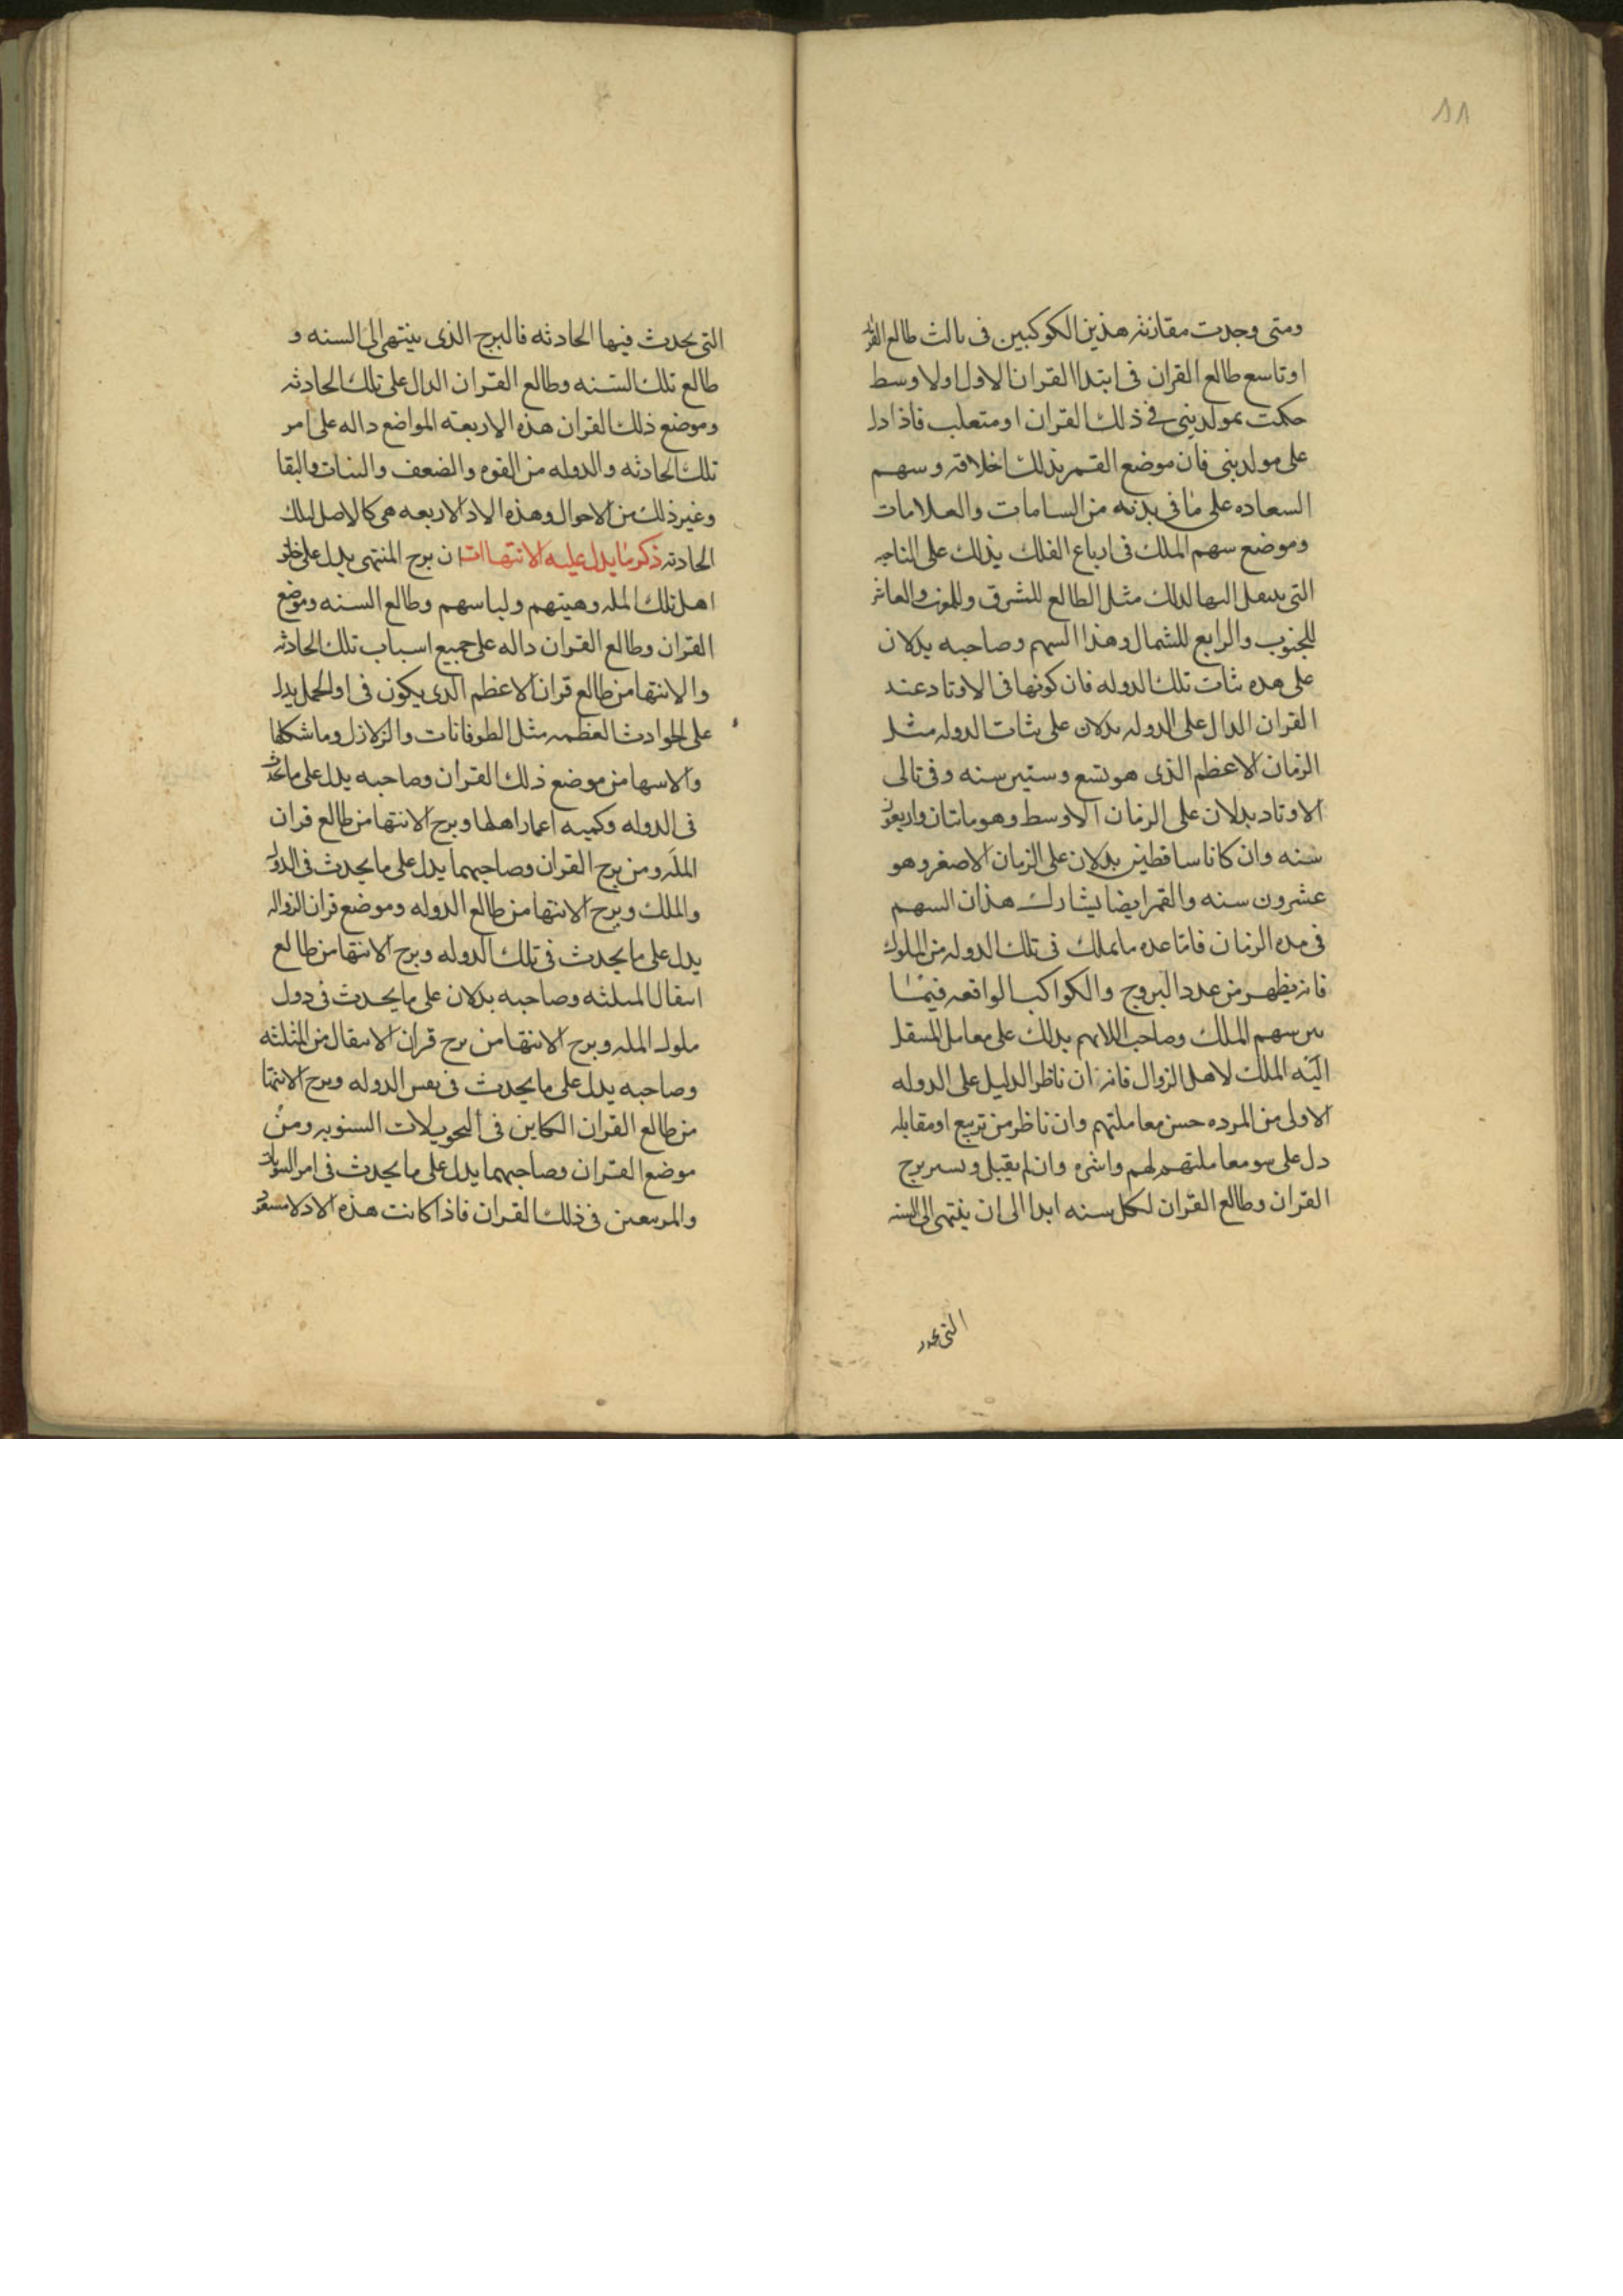 ٨٨
ومتى وجدت مقارنة هذين الكوكبين فى ثالث طالع القران
او تاسع طالع القران فى ابتدا القران الاول او الاوسط
حكمت بمولد بنى فى ذلك القران او متعلب فاذا دل
على مولد بنى فان موضع القمر يدلك اخلاقه وسهم
السعاده على ما فى بدنه من السامات والعلامات
وموضع سهم الملك فى ارباع الفلك يدلك على الناحيه
التى ينتقل اليها لدلك مثل الطالع للشرق وللغرب والعاشر
للجنوب والرابع للشمال وهذا السهم وصاحبه يدلان
على مده ثبات تلك الدوله فان كونها فى الاوتاد عند
القران الدال على الدوله يدلان على ثبات الدوله مثل
الزمان الاعظم الذى هو تسع وستين سنه وفى تالى
الاوتاد يدلان على الزمان الاوسط وهو ماتان واربعون
سنه وان كانا ساقطين يدلان على الزمان الاصغر وهو
عشرون سنه والقمر ايضا يشارك هذان السهم
فى مده الزمان فاما عده ما يملك فى تلك الدوله من الملوك
فانه يظهر من عدد البروج والكواكب الواقعه فيما
بين سهم الملك وصاحب اللازم يدلك على معامل المنتقل
اليه الملك لاهل الزوال فانه ان ناظر الدليل على الدوله
الاولى من المرده حسن معاملتهم وان ناظر من تربيع او مقابله
دل على سو معاملتهم لهم واشره وان لم يقبل وتسير برج
القران وطالع القران لكل سنه ابدا الى ان ينتهى الى السنه
التى تحدث
التى يحدث فيها الحادثه فالبرج الذى ينتهى الى السنه و
طالع تلك السنه وطالع القران الدال على تلك الحادثه
وموضع ذلك القران هذه الاربعه المواضع داله على امر
تلك الحادثه والدوله من القوه والضعف والثبات والبقا
وغير ذلك من الاحوال وهذه الادلا الاربعه هى كالاصل لتلك
الحادثه ذكر ما يدل عليه الانتهاات ان برج المنتهى يدل على خلق
اهل تلك المله وهيتهم ولباسهم وطالع السنه وموضع
القران وطالع القران داله على جميع اسباب تلك الحادثه
والانتها من طالع قران الاعظم الذى يكون فى اول الحمل يدل
على الحوادث العظمه مثل الطوفانات والزلازل وما شكلها
والانتها من موضع ذلك القران وصاحبه يدل على ما يحدث
فى الدوله وكميه اعمار اهلها وبرج الانتها من طالع قران
المله ومن برج القران وصاحبهما يدل على ما يحدث فى الدول
والملك وبرج الانتها من طالع الدوله وموضع قران الزواله
يدل على ما يحدث فى تلك الدوله وبرج الانتها من طالع
انتقال المثلثه وصاحبه يدلان على ما يحدث فى دول
ملوك المله وبرج الانتها من برج قران الانتقال من المثلثه
وصاحبه يدل على ما يحدث فى نفس الدوله وبرج الانتها
من طالع القران الكاين فى التحويلات السنويه ومن
موضع القران وصاحبهما يدل على ما يحدث فى امر
والمربعين فى ذلك القران فاذا كانت هذه الادلا